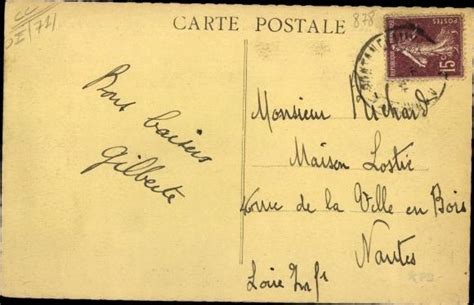 CARTE POSTALE
878
POSTES
15c
Bons baisers
Gilberte
Monsieur Richard
Maison Lostie
rue de la Ville en Bois
Nantes
Loire Infre